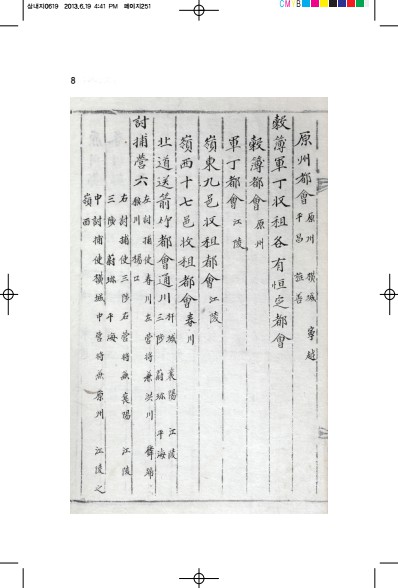 삼내지0619 2013.6.19 4:41 PM 페이지251
CM B
8
原州都會 原州 橫城 寧越
平昌 旌善
穀簿軍丁收租各有恒定都會
穀簿都會 原州
軍丁都會 江陵
嶺東九邑收租都會 江陵
嶺西十七邑收租都會 春川
北道送箭竹都會 通川 杆城 襄陽 江陵
三陟 蔚珍 平海
討捕營六 左討捕使春川左營將兼 洪川
狼川 楊口
右討捕使三陟右營將兼 襄陽 江陵
三陟 蔚珍 平海
中討捕使橫城中營將兼 原州 江陵之
嶺西